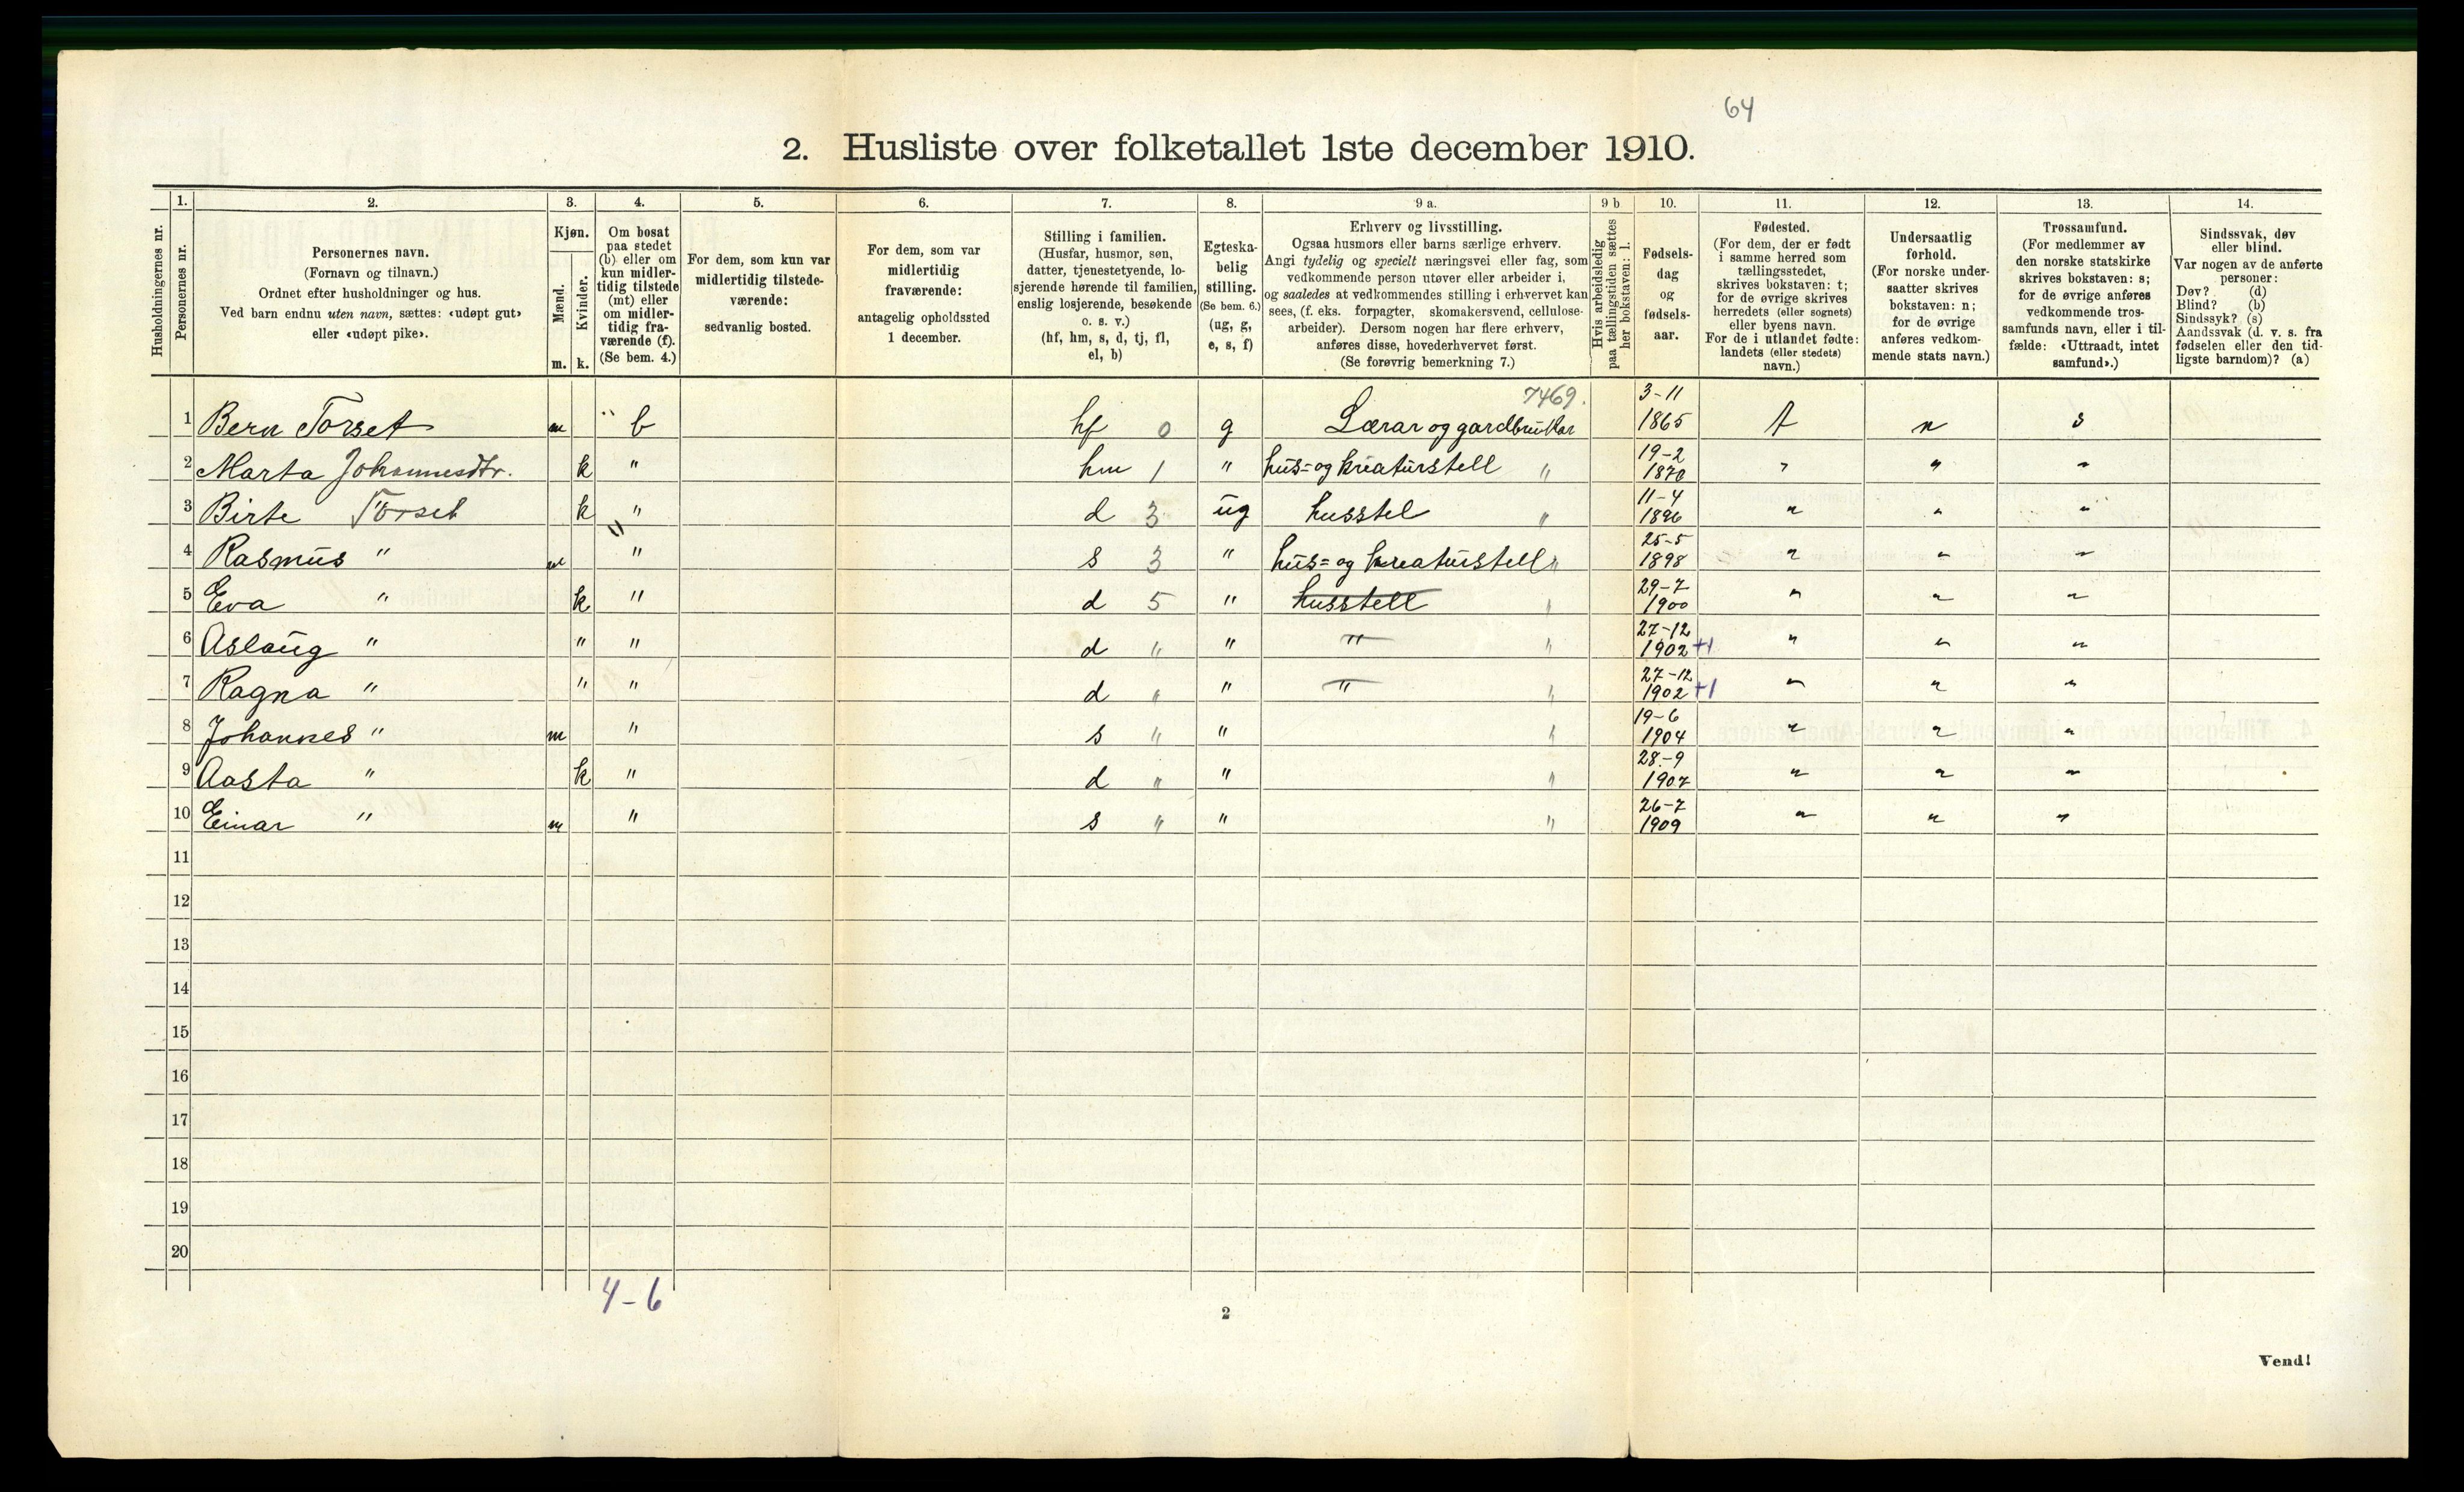 64
2. Husliste over folketallet 1ste december 1910.
Husholdningernes nr.
1.
Personernes nr.
2.
Personernes navn.
(Fornavn og tilnavn.)
Ordnet efter husholdninger og hus.
Ved barn endnu uten navn, sættes: «udøpt gut»
eller «udøpt pike».
3.
Kjøn.
Mænd.
Kvinder.
m. k.
4.
Om bosat
paa stedet
(b) eller om
kun midler-
tidig tilstede
(mt) eller
om midler-
tidig fra-
værende (f).
(Se bem. 4.)
5.
For dem, som kun var
midlertidig tilstede-
værende:
sedvanlig bosted.
6.
For dem, som var
midlertidig
fraværende:
antagelig opholdssted
1 december.
7.
Stilling i familien.
(Husfar, husmor, søn,
datter, tjenestetyende, lo-
sjerende hørende til familien,
enslig losjerende, besøkende
o. s. v.)
(hf, hm, s, d, tj, fl,
el, b)
8.
Egteska-
belig
stilling.
(Se bem. 6.)
(ug, g,
e, s, f)
9 a.
Erhverv og livsstilling.
Ogsaa husmors eller barns særlige erhverv.
Angi tydelig og specielt næringsvei eller fag, som
vedkommende person utøver eller arbeider i,
og saaledes at vedkommendes stilling i erhvervet kan
sees, (f. eks. forpagter, skomakersvend, cellulose-
arbeider). Dersom nogen har flere erhverv,
anføres disse, hovederhvervet først.
(Se forøvrig bemerkning 7.)
9 b
Hvis arbeidsledig
paa tællingstiden sættes
her bokstaven: l.
10.
Fødsels-
dag
og
fødsels-
aar.
11.
Fødested.
(For dem, der er født
i samme herred som
tællingsstedet,
skrives bokstaven: t;
for de øvrige skrives
herredets (eller sognets)
eller byens navn.
For de i utlandet fødte:
landets (eller stedets)
navn.)
12.
Undersaatlig
forhold.
(For norske under-
saatter skrives
bokstaven: n;
for de øvrige
anføres vedkom-
mende stats navn.)
13.
Trossamfund.
(For medlemmer av
den norske statskirke
skrives bokstaven: s;
for de øvrige anføres
vedkommende tros-
samfunds navn, eller i til-
fælde: «Uttraadt, intet
samfund».)
14.
Sindssvak, døv
eller blind.
Var nogen av de anførte
personer:
Døv? (d)
Blind? (b)
Sindssyk? (s)
Aandssvak (d. v. s. fra
fødselen eller den tid-
ligste barndom)? (a)
7469.
1 Bern Torset m b hf 0 g Lærar og gardbrukar 3-11 1865 t n s
2 Marta Johannesdtr. k " hm 1 " hus- og kreaturstell " 19-2 1870 " " "
3 Birte Torset k " d 3 ug husstel " 11-4 1896 " " "
4 Rasmus " m " s 3 " hus- og kreaturstell " 25-5 1898 " " "
5 Eva " k " d 5 " husstell " 29-7 1900 " " "
6 Aslaug " " " d " " " " 27-12 1902 +1 " " "
7 Ragna " " " d " " " " 27-12 1902 +1 " " "
8 Johannes " m " s " " " 19-6 1904 " " "
9 Aasta " k " d " " " 28-9 1907 " " "
10 Einar " m " s " " " 26-7 1909 " " "
11
12
13
14
15
16
17
18
19
20
4-6
2
Vend!